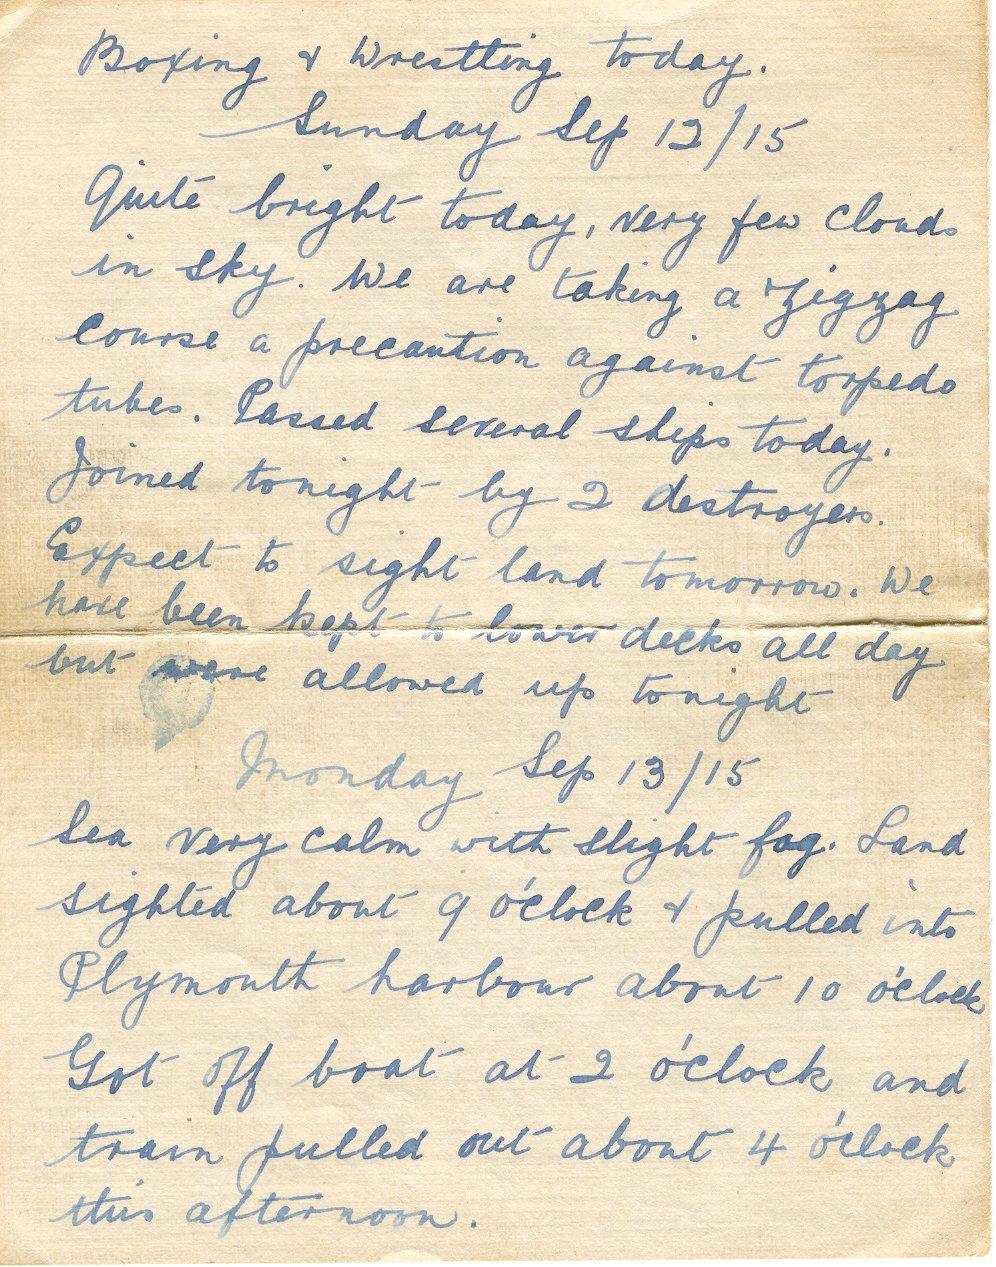 Boxing & Wrestting today.
Sunday Sep 12/15
Quite bright today, very few clouds
in sky. We are taking a zigzag
course a precaution against torpedo
tubes. Passed several ships today.
Joined tonight by 2 destroyers.
Expect to sight land tomorrow. We
have been kept to lower decks all day
but were allowed up tonight
Monday Sep 13/15
Sea very calm with slight fog. Land
sighted about 9 o'clock & pulled into
Plymouth harbour about 10 o'clock
Got off boat at 2 o'clock and
train pulled out about 4 o'clock
this afternoon.